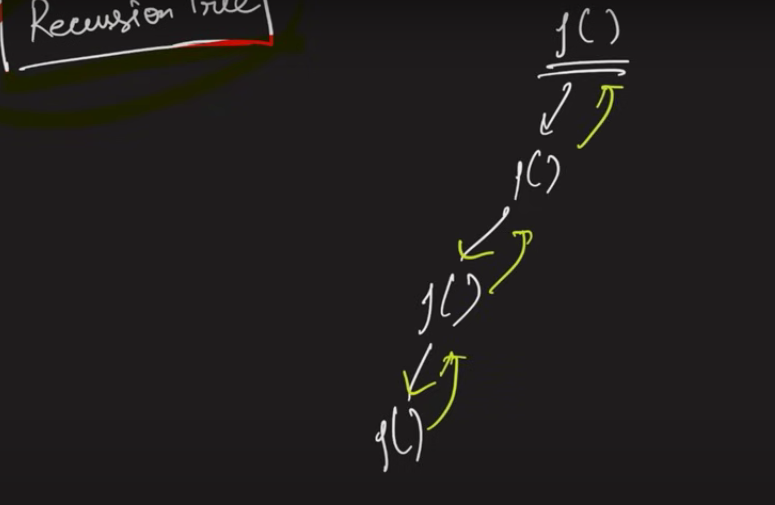 Recussion Tree
f()
f()
f()
f()